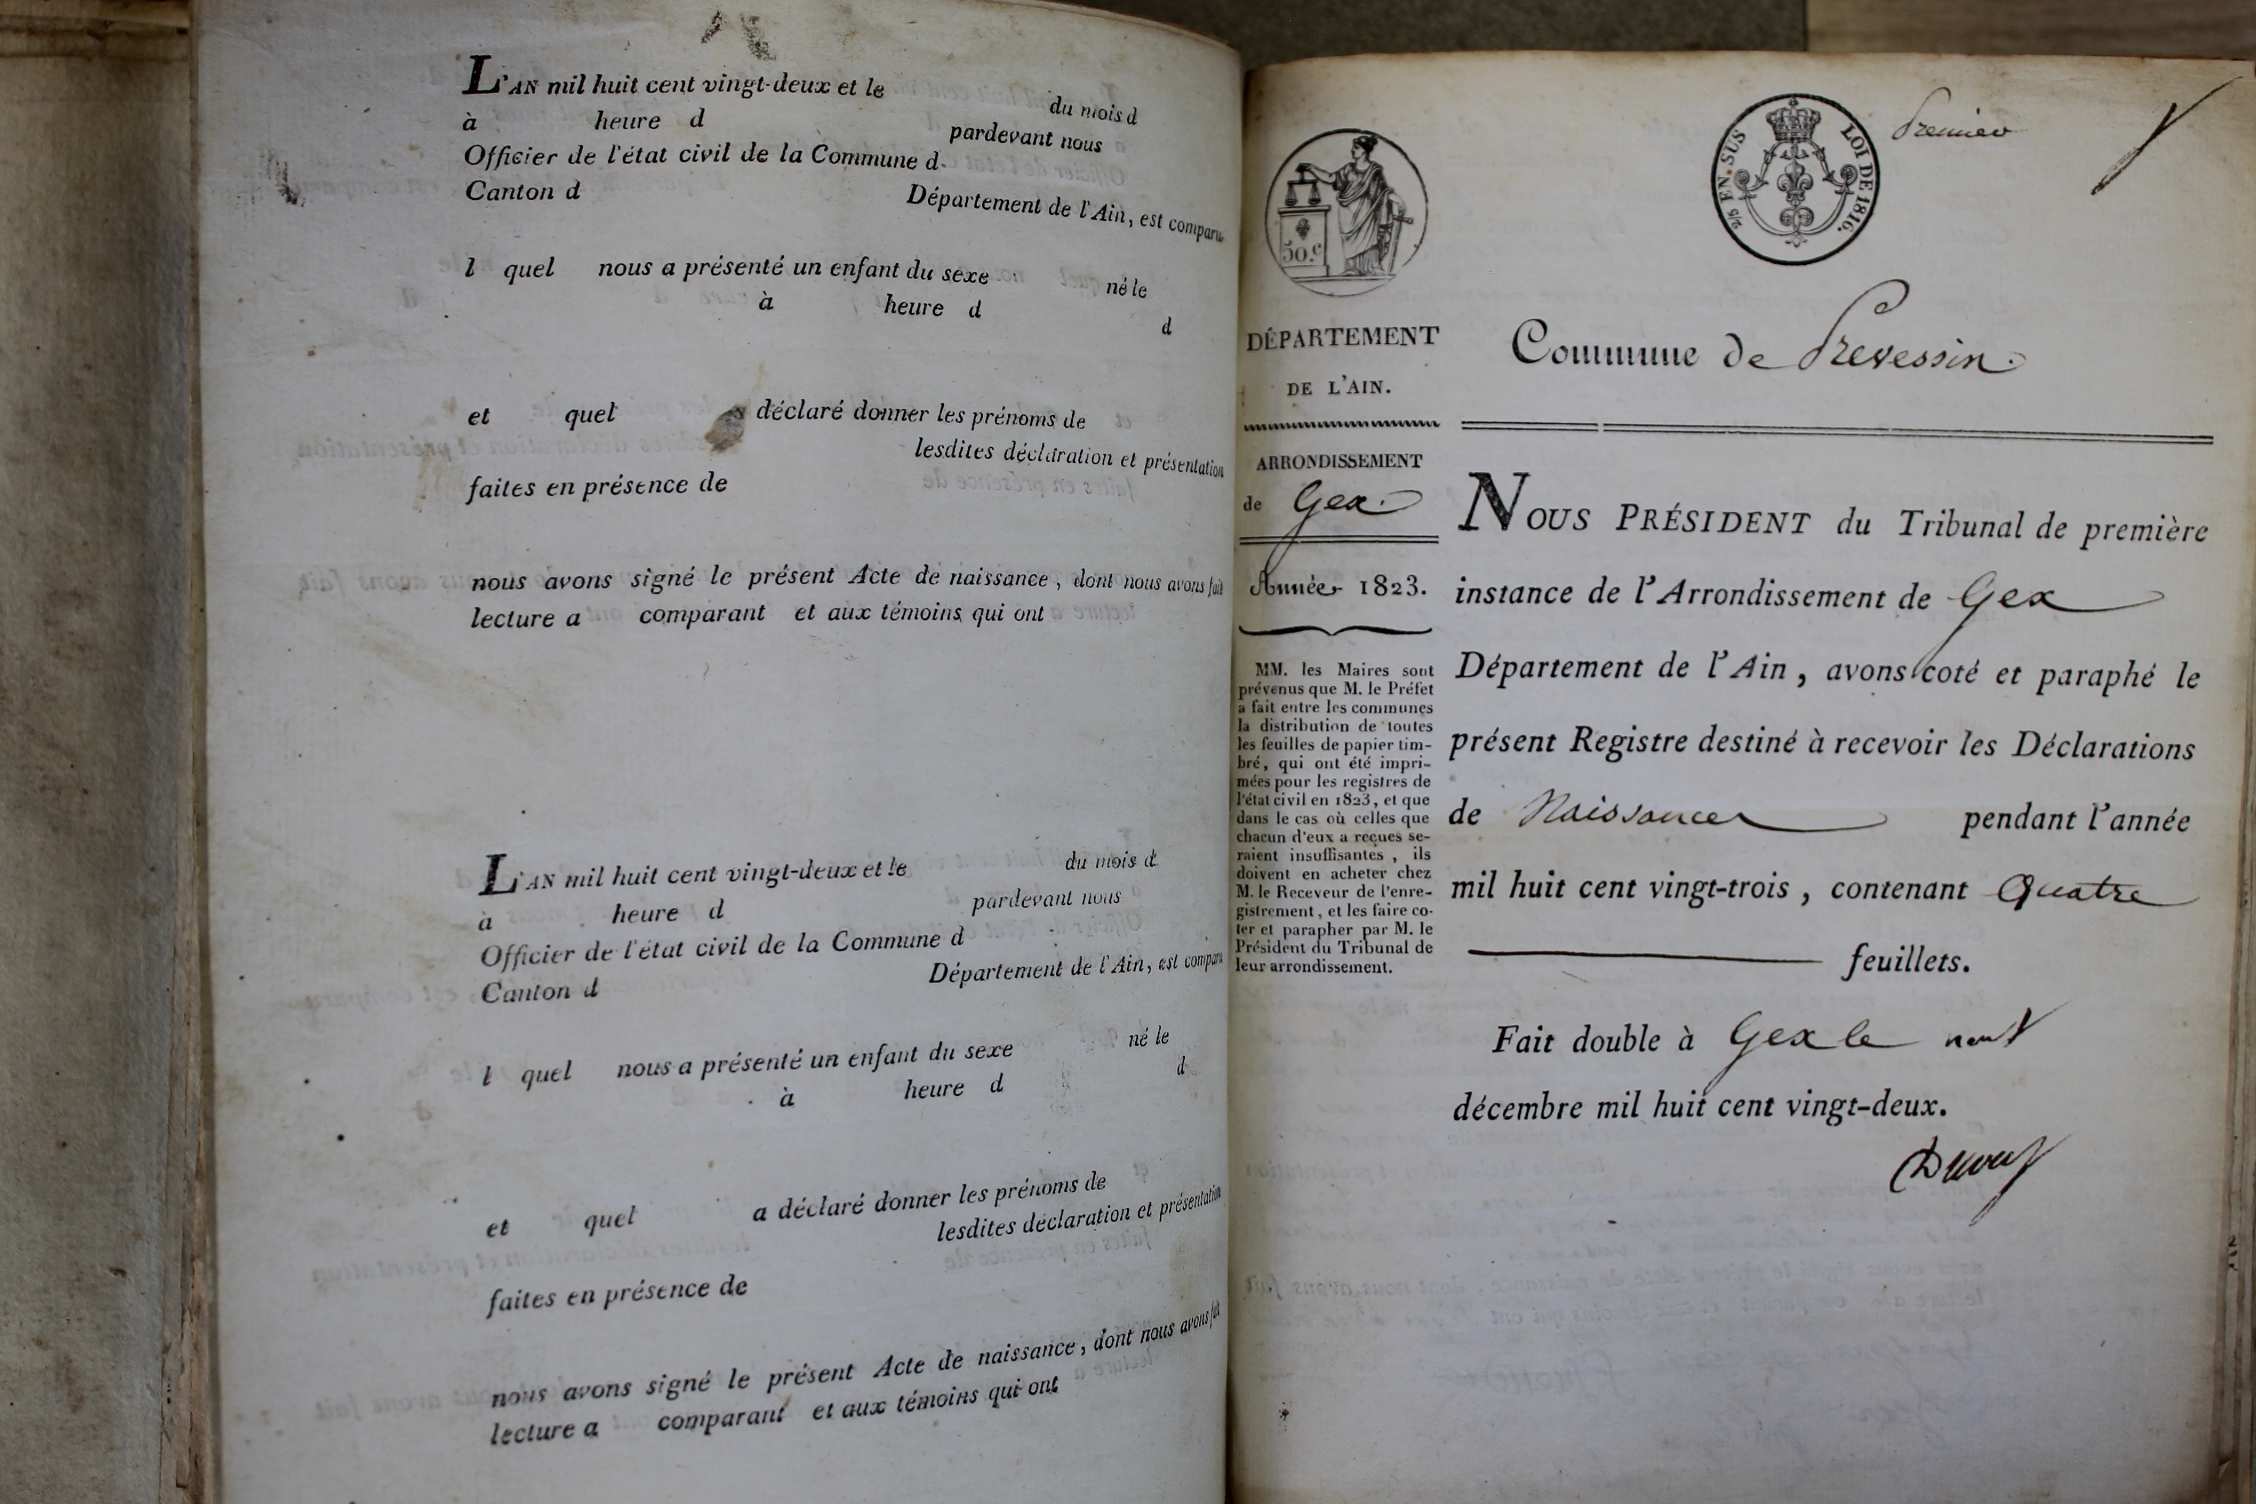 L'AN mil huit cent vingt-deux et le du mois d
à heure d pardevant nous
Officier de l'état civil de la Commune d
Canton d Département de l'Ain, est comparu
l quel nous a présenté un enfant du sexe né le
à heure d d
et quel a déclaré donner les prénoms de
lesdites déclaration et présentation
faites en présence de
nous avons signé le présent Acte de naissance, dont nous avons fait
lecture a comparant et aux témoins qui ont
L'AN mil huit cent vingt-deux et le du mois d
à heure d pardevant nous
Officier de l'état civil de la Commune d
Canton d Département de l'Ain, est comparu
l quel nous a présenté un enfant du sexe né le
à heure d d
et quel a déclaré donner les prénoms de
lesdites déclaration et présentation
faites en présence de
nous avons signé le présent Acte de naissance, dont nous avons fait
lecture a comparant et aux témoins qui ont
50.c
2/5 EN SUS LOI DE 1816.
Premier
DÉPARTEMENT
DE L'AIN.
ARRONDISSEMENT
de Gex.
Année 1823.
MM. les Maires sont
prévenus que M. le Préfet
a fait entre les communes
la distribution de toutes
les feuilles de papier tim-
bré, qui ont été impri-
mées pour les registres de
l'état civil en 1823, et que
dans le cas où celles que
chacun d'eux a reçues se-
raient insuffisantes, ils
doivent en acheter chez
M. le Receveur de l'enre-
gistrement, et les faire co-
ter et parapher par M. le
Président du Tribunal de
leur arrondissement.
Commune de Prevessin.
NOUS PRÉSIDENT du Tribunal de première
instance de l'Arrondissement de Gex
Département de l'Ain, avons coté et paraphé le
présent Registre destiné à recevoir les Déclarations
de Naissances pendant l'année
mil huit cent vingt-trois, contenant Quatre
feuillets.
Fait double à Gex le neuf
décembre mil huit cent vingt-deux.